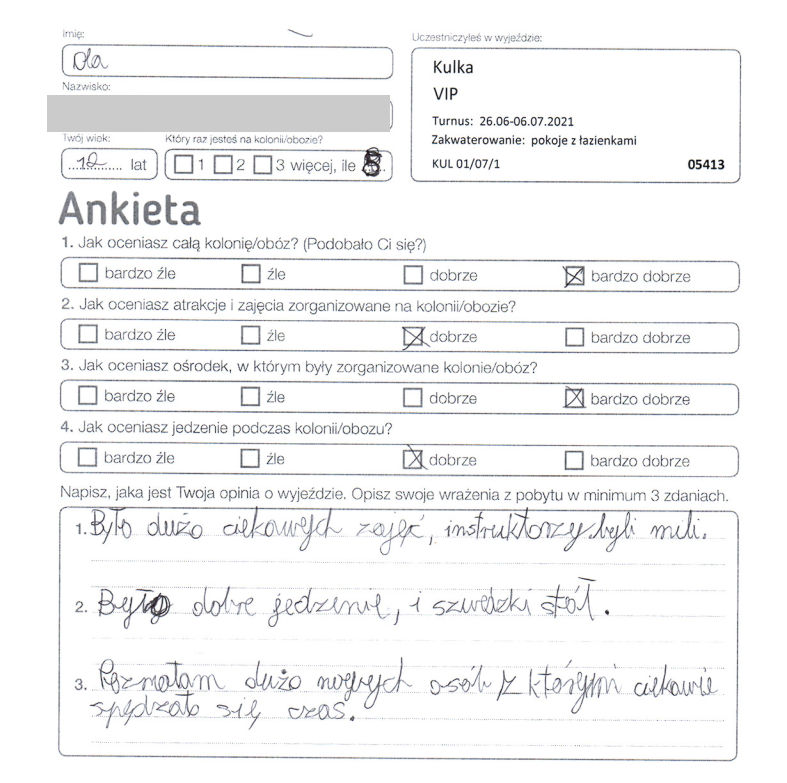 Imię:
Ola
Uczestniczyłeś w wyjeździe:
Kulka
VIP
Turnus: 26.06-06.07.2021
Zakwaterowanie: pokoje z łazienkami
KUL 01/07/1 05413
Nazwisko:
Twój wiek: Który raz jesteś na kolonii/obozie?
12 lat 1 2 3 więcej, ile
Ankieta
1. Jak oceniasz całą kolonię/obóz? (Podobało Ci się?)
bardzo źle źle dobrze bardzo dobrze
2. Jak oceniasz atrakcje i zajęcia zorganizowane na kolonii/obozie?
bardzo źle źle dobrze bardzo dobrze
3. Jak oceniasz ośrodek, w którym były zorganizowane kolonie/obóz?
bardzo źle źle dobrze bardzo dobrze
4. Jak oceniasz jedzenie podczas kolonii/obozu?
bardzo źle źle dobrze bardzo dobrze
Napisz, jaka jest Twoja opinia o wyjeździe. Opisz swoje wrażenia z pobytu w minimum 3 zdaniach.
1. Było dużo ciekawych zajęć, instruktorzy byli mili.
2. Było dobre jedzenie, i szwedzki stół.
3. Poznałam dużo nowych osób z którymi ciekawie
spędzało się czas.